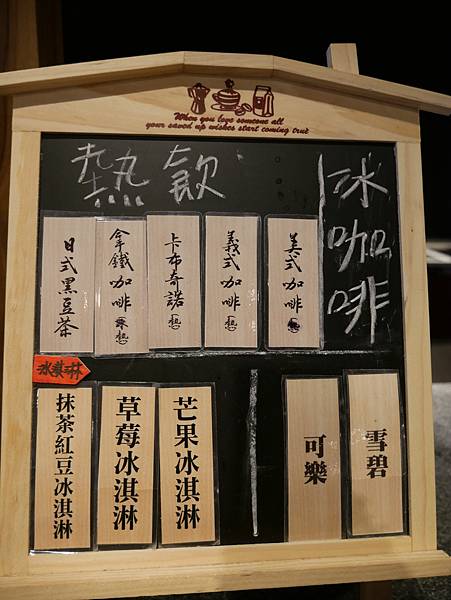 When you love someone all
your saved up wishes start coming true
冰咖啡
熱飲
美式咖啡
義式咖啡(熱)
卡布奇諾(熱)
拿鐵咖啡
日式黑豆茶
冰淇淋
雪碧
可樂
芒果冰淇淋
草莓冰淇淋
抹茶紅豆冰淇淋